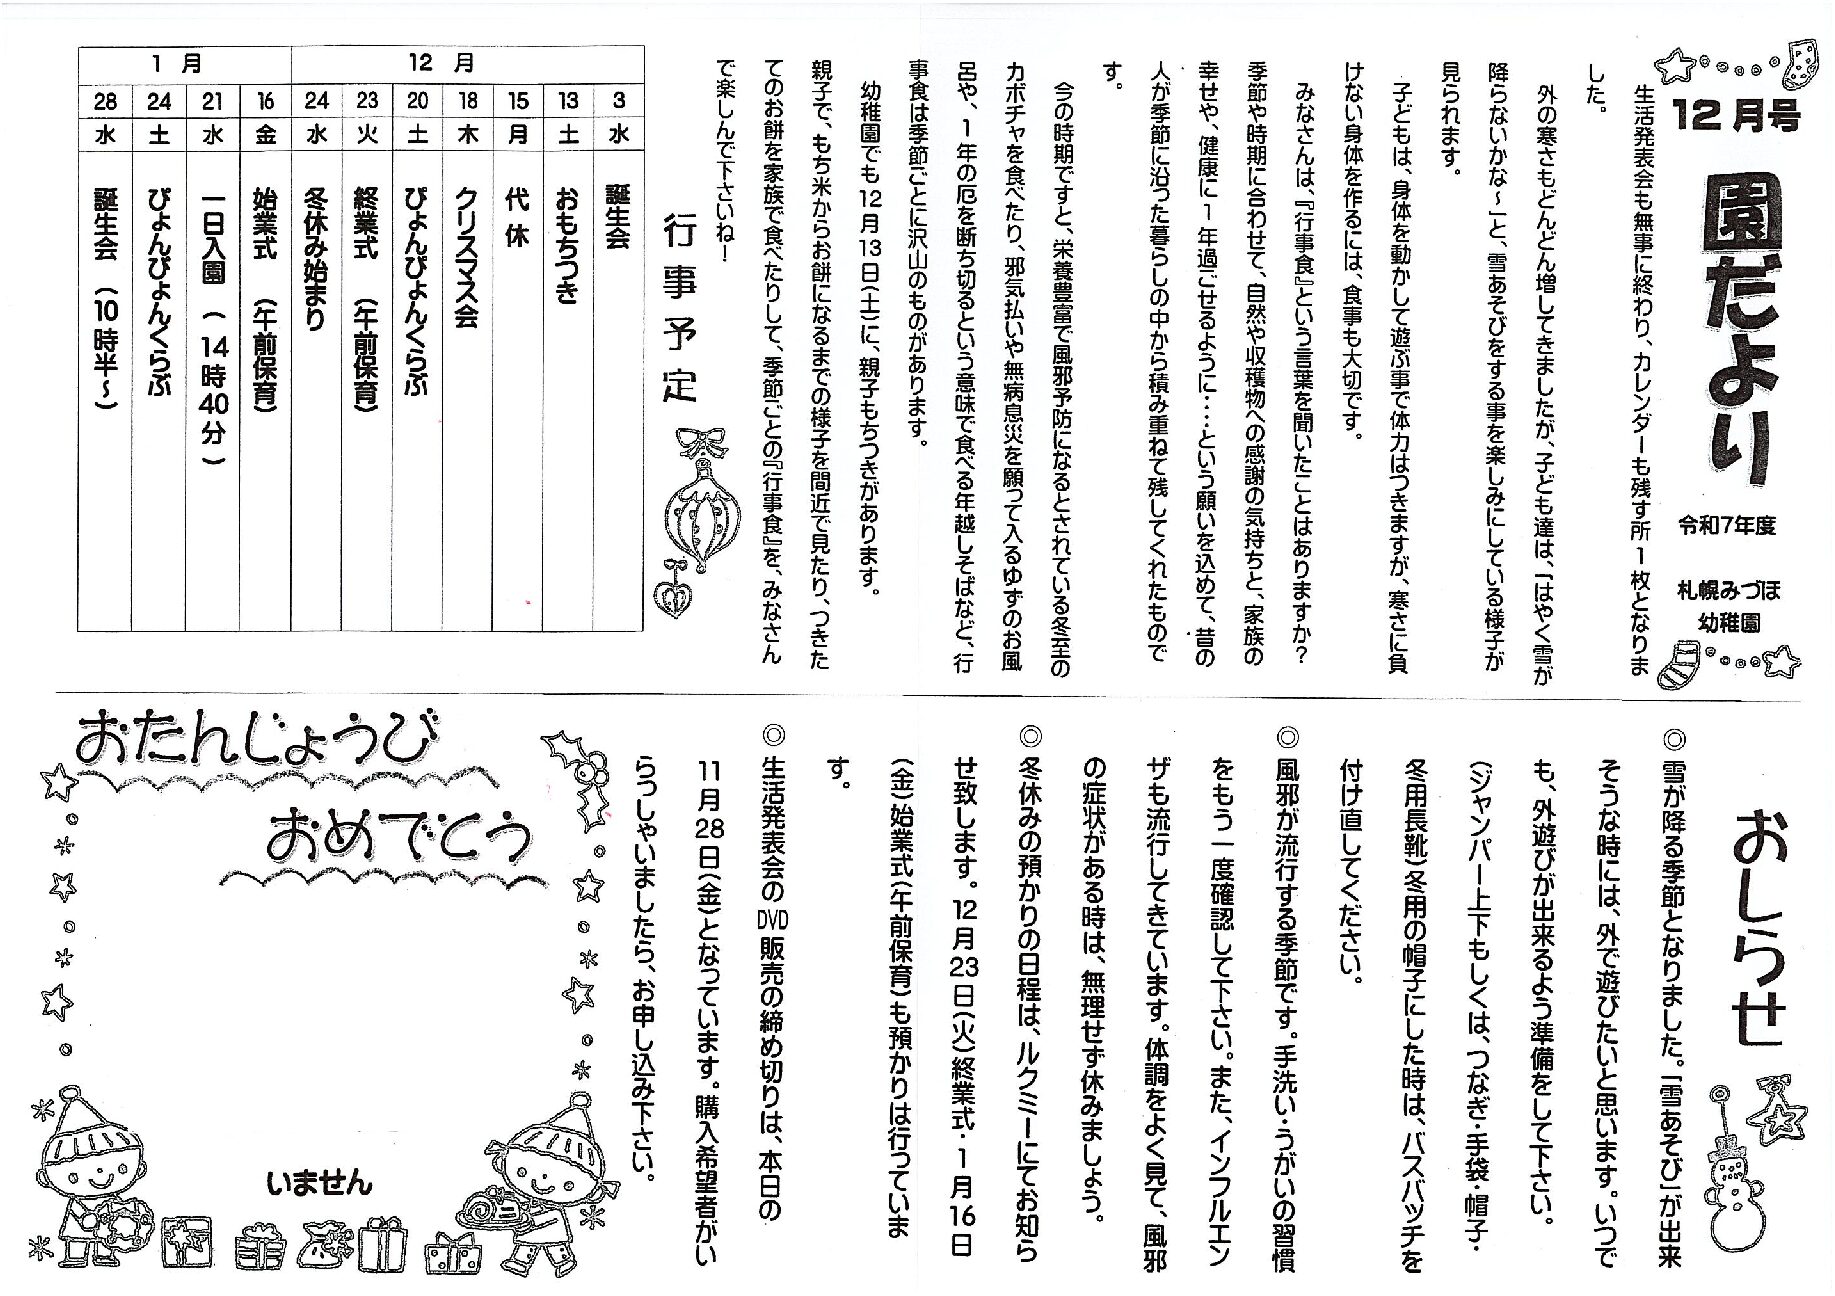 12月号
園だより
令和7年度
札幌みづほ
幼稚園
生活発表会も無事に終わり、カレンダーも残す所1枚となりま
した。
外の寒さもどんどん増してきましたが、子ども達は、「はやく雪が
降らないかな～」と、雪あそびをする事を楽しみにしている様子が
見られます。
子どもは、身体を動かして遊ぶ事で体力はつきますが、寒さに負
けない身体を作るには、食事も大切です。
みなさんは、『行事食』という言葉を聞いたことはありますか？
季節や時期に合わせて、自然や収穫物への感謝の気持ちと、家族の
幸せや、健康に1年過ごせるように・・・という願いを込めて、昔の
人が季節に沿った暮らしの中から積み重ねて残してくれたもので
す。
今の時期ですと、栄養豊富で風邪予防になるとされている冬至の
カボチャを食べたり、邪気払いや無病息災を願って入るゆずのお風
呂や、1年の厄を断ち切るという意味で食べる年越しそばなど、行
事食は季節ごとに沢山のものがあります。
幼稚園でも12月13日(土)に、親子もちつきがあります。
親子で、もち米からお餅になるまでの様子を間近で見たり、つきた
てのお餅を家族で食べたりして、季節ごとの『行事食』を、みなさん
で楽しんで下さいね！
行事予定
12月
3 水 誕生会
13 土 おもちつき
15 月 代休
18 木 クリスマス会
20 土 ぴょんぴょんくらぶ
23 火 終業式（午前保育）
24 水 冬休み始まり
1月
16 金 始業式（午前保育）
21 水 一日入園（14時40分）
24 土 ぴょんぴょんくらぶ
28 水 誕生会（10時半～）
おしらせ
◎雪が降る季節となりました。「雪あそび」が出来
そうな時には、外で遊びたいと思います。いつで
も、外遊びが出来るよう準備をして下さい。
(ジャンパー上下もしくは、つなぎ・手袋・帽子・
冬用長靴)冬用の帽子にした時は、バスバッチを
付け直してください。
◎風邪が流行する季節です。手洗い・うがいの習慣
をもう一度確認して下さい。また、インフルエン
ザも流行してきています。体調をよく見て、風邪
の症状がある時は、無理せず休みましょう。
◎冬休みの預かりの日程は、ルクミーにてお知ら
せ致します。12月23日(火)終業式・1月16日
(金)始業式(午前保育)も預かりは行っていま
す。
◎生活発表会のDVD販売の締め切りは、本日の
11月28日(金)となっています。購入希望者がい
らっしゃいましたら、お申し込み下さい。
おたんじょうび
おめでとう
いません